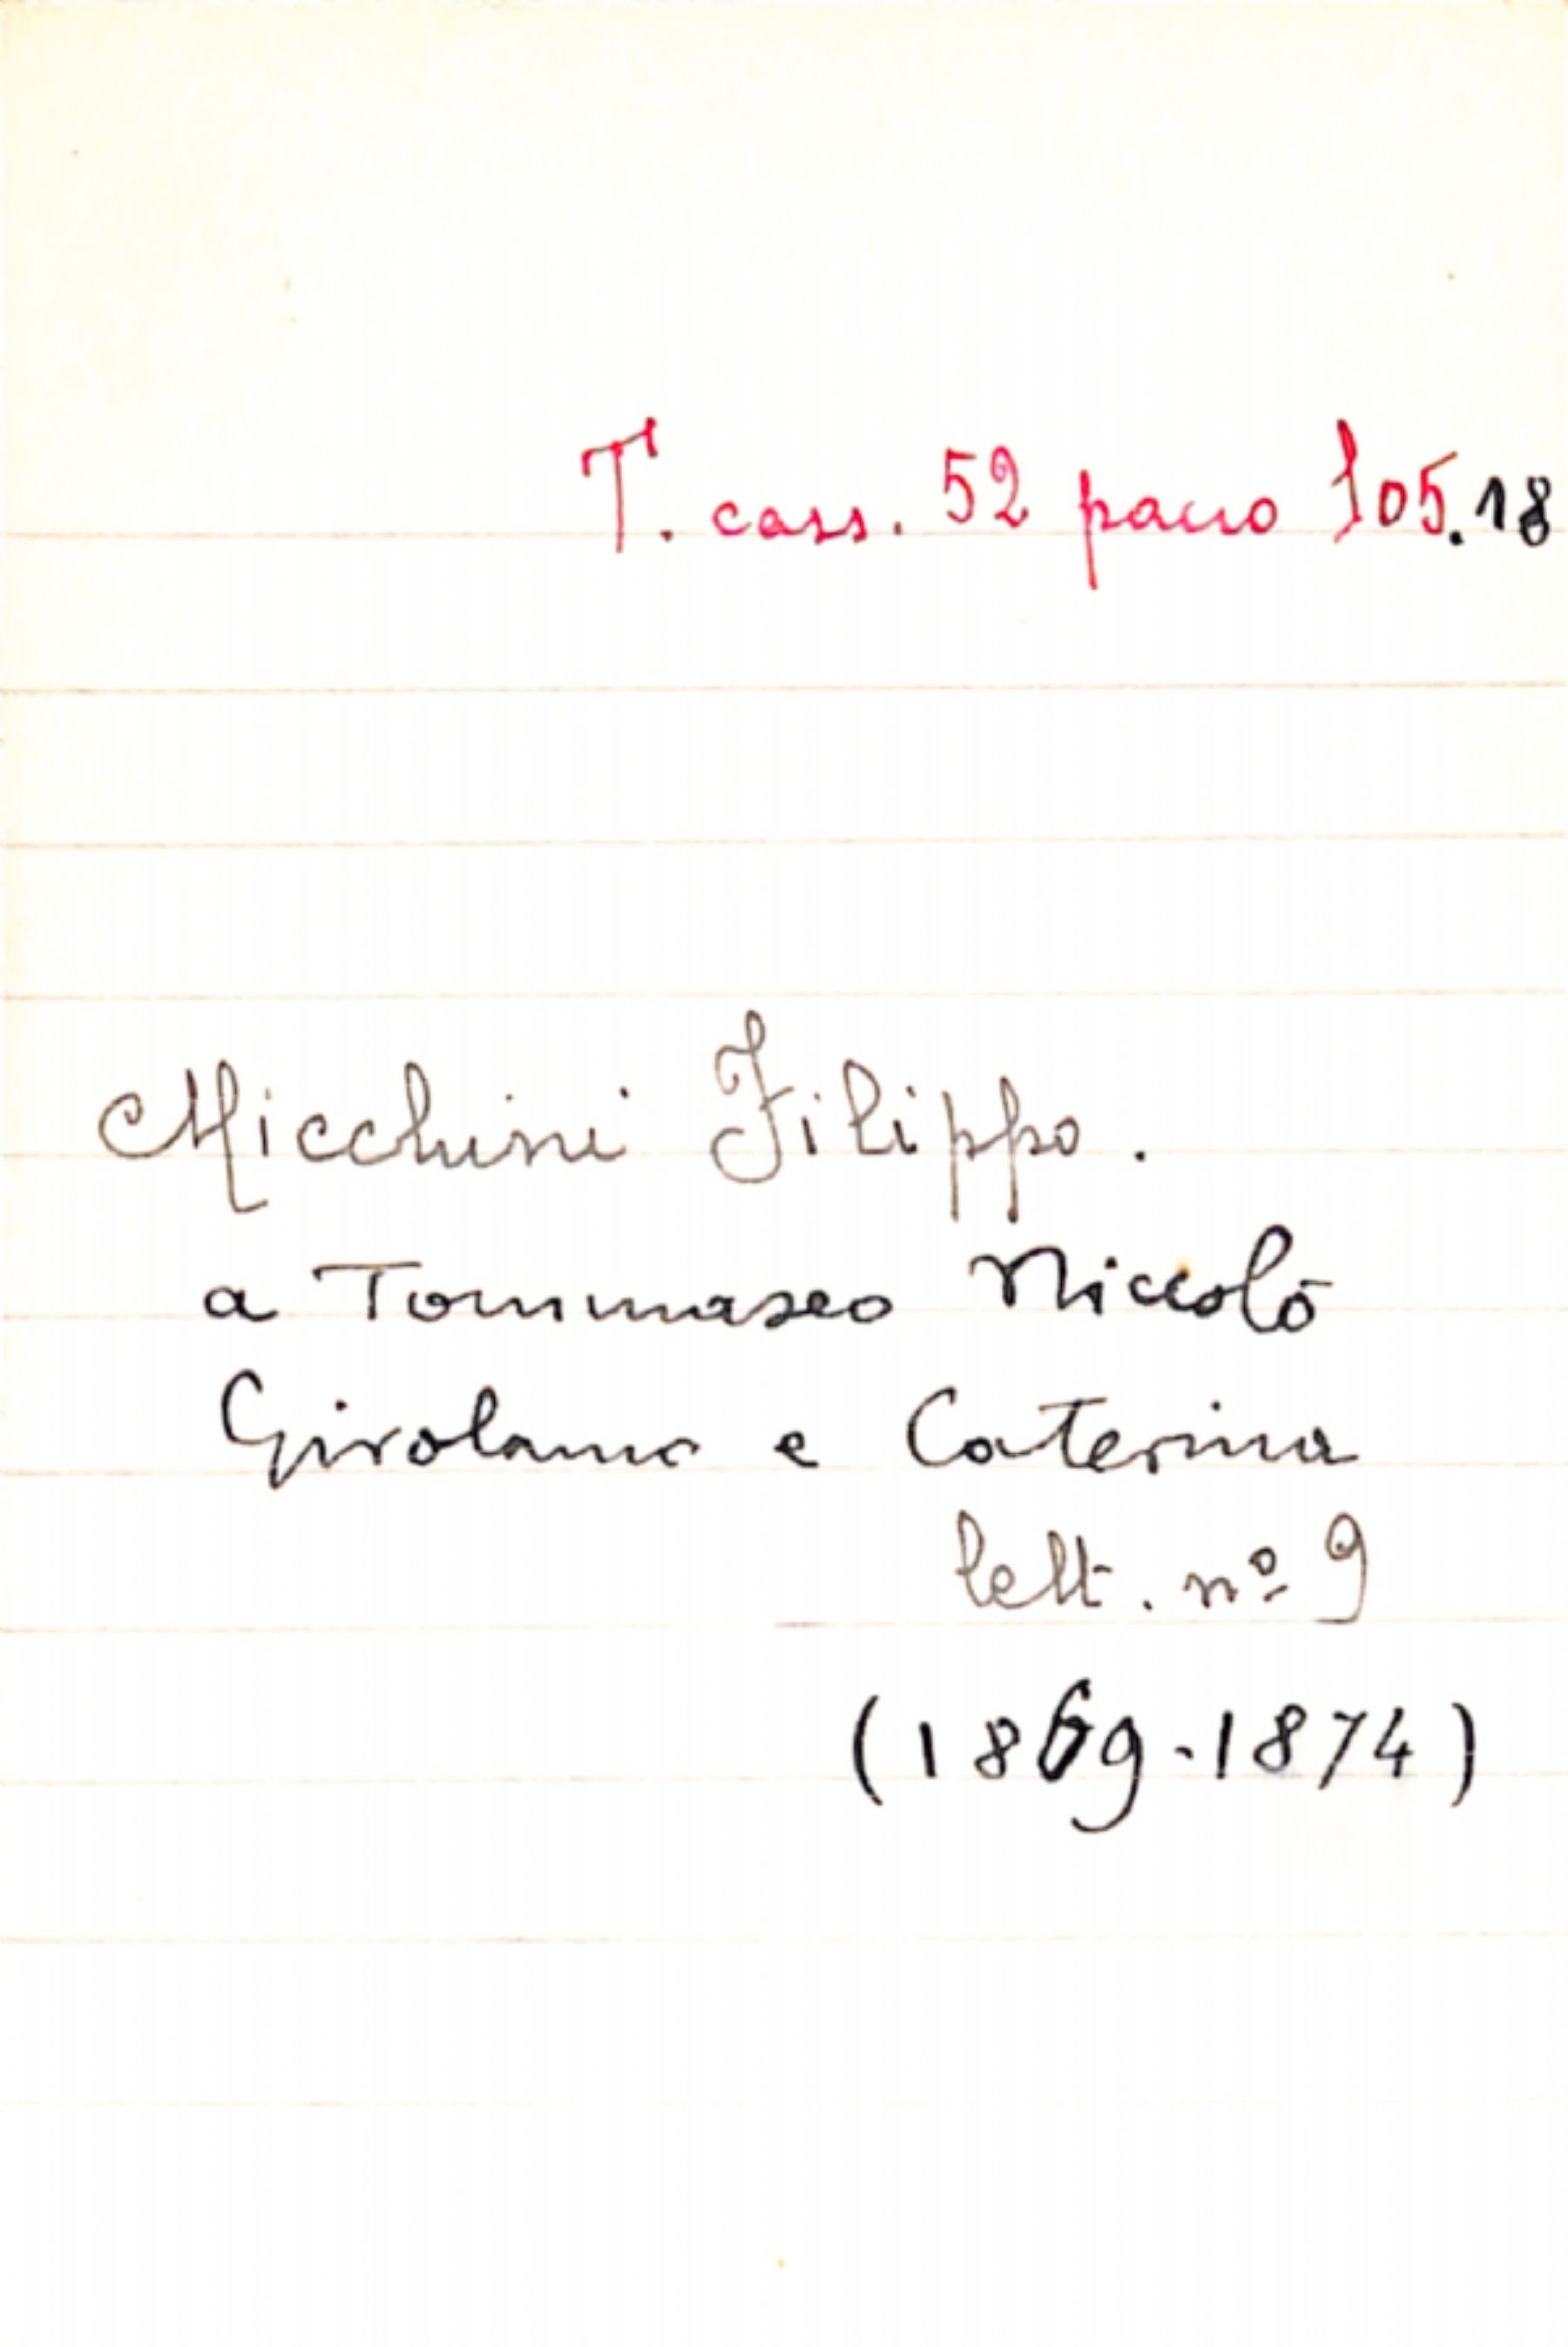 T. cass. 52 pacco 105.18
Micchini Filippo.
a Tommaseo Niccolò
Girolamo e Caterina
lett. nº 9
(1869-1874)